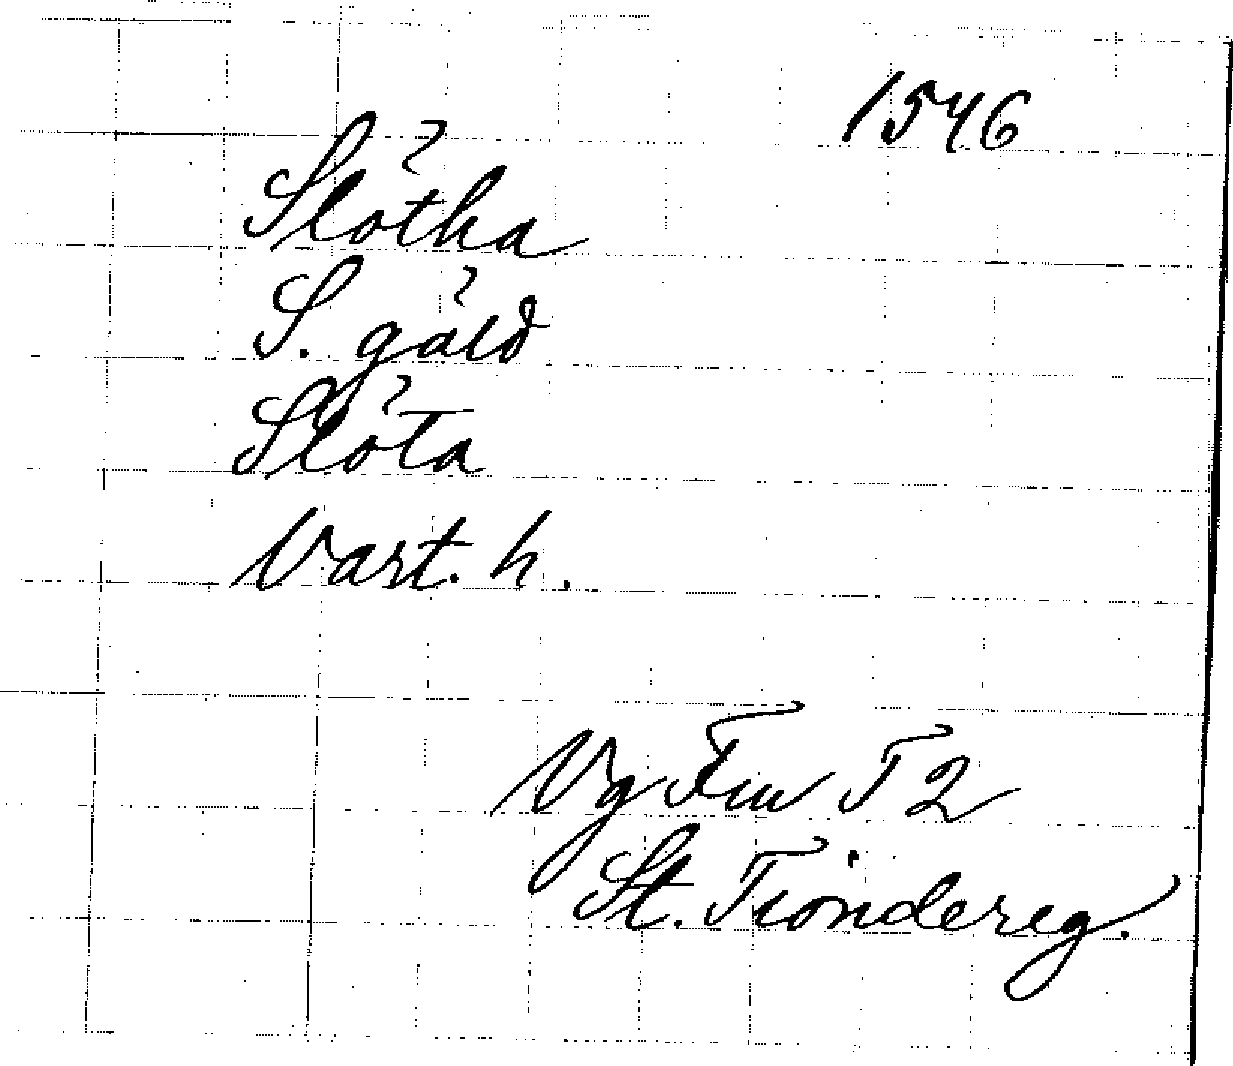 1546
Slötha
S. gäld
Slöta
Vart. h.
Vg Fru T 2
St. Tiondereg.